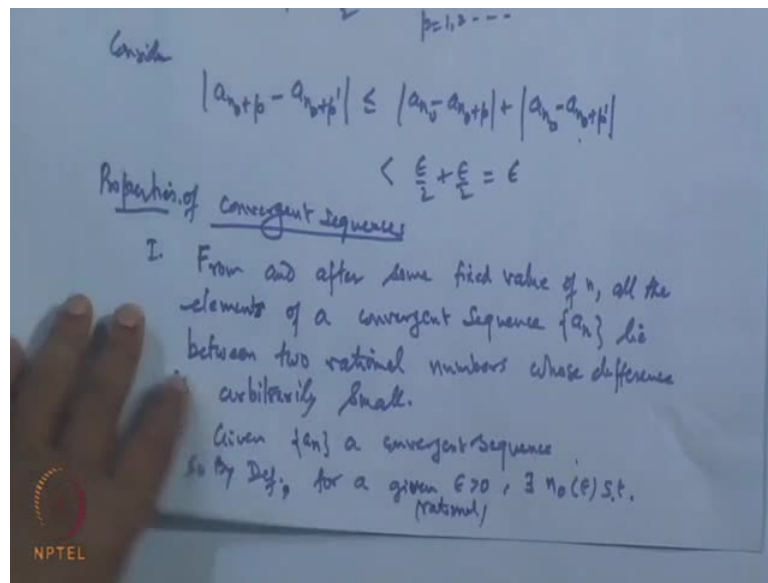 p=1,2 - - -
Consider
|a_{n_0+p} - a_{n_0+p'}| ≤ |a_{n_0} - a_{n_0+p}| + |a_{n_0} - a_{n_0+p'}|
< ε/2 + ε/2 = ε
Properties of Convergent Sequences
I. From and after some fixed value of n, all the
elements of a convergent sequence {a_n} lie
between two rational numbers whose difference
arbitrarily small.
Given {a_n} a convergent sequence
So By Def., for a given ε>0, ∃ n_0(ε) s.t.
(rational)
NPTEL